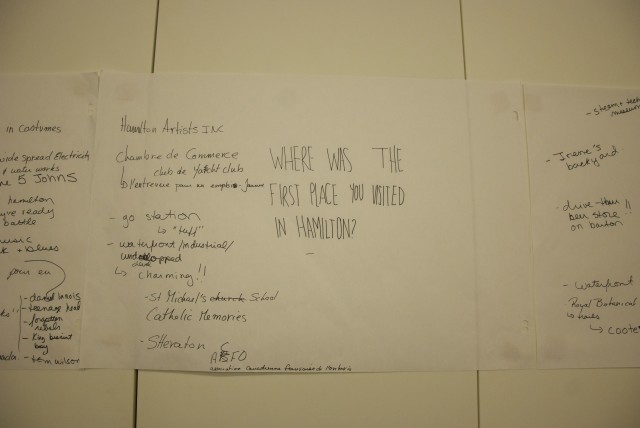 in Costumes
wide spread Electricity
+ water works
5 Johns
hamilton
ready
battle
music
k + blues
pour en
- daniel lanois
- teenage head
- forgotten
rebels
- King biscuit
boy
- tom wilson
Hamilton Artists INC
Chambre de Commerce
club de Yacht club
↳ l'entrevue pour un emploi
- go station
↳ "tuff"
- waterfront/industrial/
↳ charming!!
- St Michael's church School
Catholic Memories
- Sheraton
WHERE WAS THE
FIRST PLACE YOU VISITED
IN HAMILTON?
- steam + tech
museum
- Irene's
backyard
- drive-thru !!
beer store
on barton
- waterfront
Royal Botanical
↳ Coote